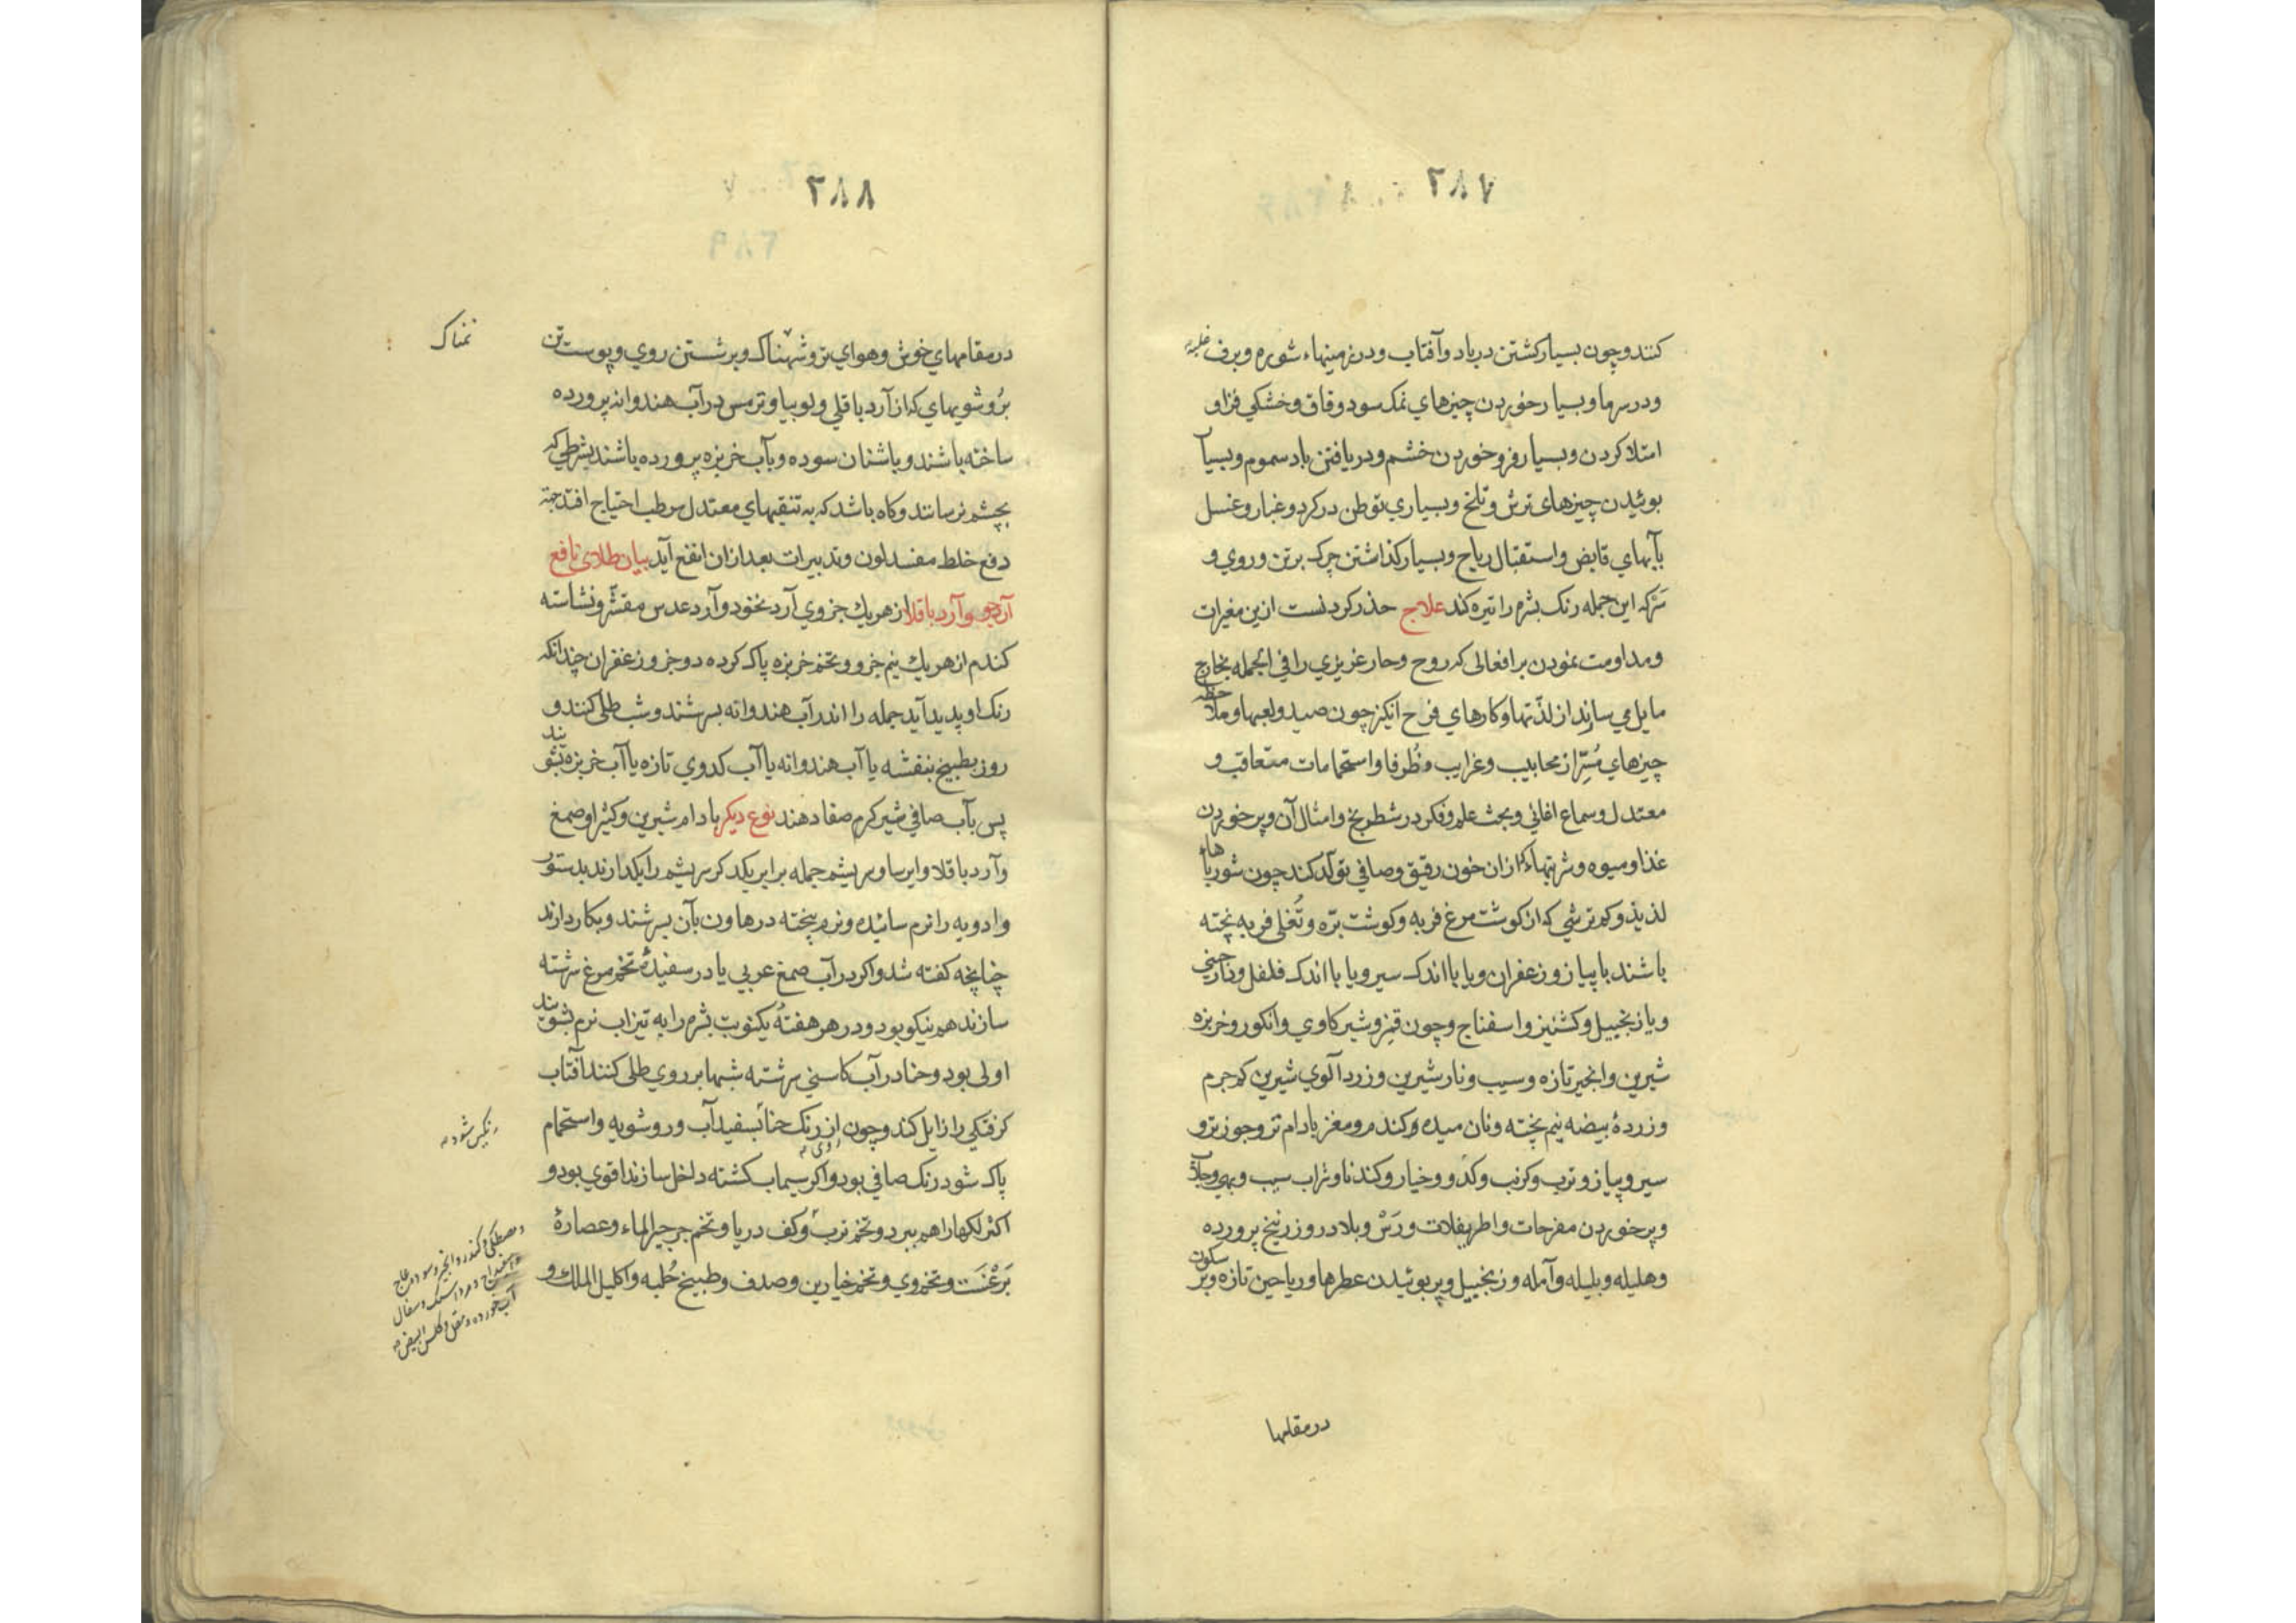 ٢٨٧
کنند و چون بسیار کشتن در باد و آفتاب و در زمینهاء شوره و برف
و در سرما و بسیار خوردن چیزهای نمک سود و قاق و خشکی فزا و
امتلا کردن و بسیار فرو خوردن خشم و دریافتن باد سموم و بسیا
بوئیدن چیزهای ترش و تلخ و بسیاری توطن در کرد و غبار و غسل
بآبهای قابض و استقبال ریاح و بسیار کذاشتن چرک بر تن و روی و
که این جمله رنک بشره را تیره کند علاج حذر کردنست ازین مغیرات
و مداومت نمودن بر افعالی که روح و حار غریزی را فی الجمله بخارج
مایل می سازند از لذتها و کارهای فرح انکیز چون صید و لعبها و ملاحظه
چیزهای مُسِرّ از محابیب و غرایب و ظُرفا و استحمامات متعاقب و
معتدل و سماع اغانی و بحث علم و فکر در شطرنج و امثال آن و پر خوردن
غذا و میوه و شربتهاء که ازان خون رقیق و صافی تولد کند چون شورباهاء
لذیذ و کم ترشی که از کوشت مرغ فربه و کوشت برّه و تُغلی فربه پخته
باشند با پیاز و زعفران و یا با اندک سیر و یا با اندک فلفل و دارچینی
و یا زنجبیل و کشنیز و اسفناج و چون قنز و شیر کاوی و انکور و خربزه
شیرین و انجیر تازه و سیب و نار شیرین و زرد آلوی شیرین کم جرم
و زردهٔ بیضه نیم پخته و نان میده و کندم و مغز بادام تر و جوز تر و
سیر و پیاز و ترب و کرنب و کدو و خیار و کندنا و شراب سیب و بهی و جلاب
و پر خوردن مفرحات و اطریفلات و رَسْ و بلادر و زرنیخ پرورده
و هلیله و بلیله و آمله و زنجبیل و پر بوئیدن عطرها و ریاحین تازه و پر سکون
در مقامها
٢٨٨
در مقامهای خوش و هوای تر و شهناک و بر شستن روی و پوست تن
نمناک
برُوشویهای که از آرد باقلی و لوبیا و ترمس در آب هندوانه پرورده
ساخته باشند و باشنان سوده و بآب خربزه پرورده باشند بشرطی که
بچشم نرسانند و کاه باشد که به تنقیهای معتدل مرطب احتیاج افتد جهة
دفع خلط مفسد لون و تدبیرات بعد ازان انفع آید بیان طلای نافع
آرد جو و آرد باقلا از هر یک جزوی آرد نخود و آرد عدس مقشّر و نشاسته
کندم از هر یک نیم جزو و تخم خربزه پاک کرده دو جزو زعفران چندانکه
رنک او پدید آید جمله را اندر آب هندوانه بسرشند و شب طلی کنند و
روز بطبیخ بنفشه یا آب هندوانه یا آب کدوی تازه یا آب خربزه بشویند
پس بآب صافی شیر کرم صفا دهند نوع دیکر بادام شیرین و کثیرا و صمغ
و آرد باقلا و ایرسا و سریشم جمله برابر یکدکر سریشم را بکدازند بدستور
و ادویه را نرم سائیده و نرم بیخته در هاون بآن بسرشند و بکار دارند
چنانچه کفته شد و اکر در آب صمغ عربی یا در سفیدهٔ تخم مرغ سرشته
سازند هم نیکو بود و در هر هفتهٔ یکنوبت بشره را به تیزاب نرم بشویند
اولی بود و حنا در آب کاسنی سرشته شبها بر روی طلی کنند آفتاب
کرفتکی را زایل کند و چون از رنک حنا بسفیدآب و روشویه و استحمام
رنکین شود
پاک شود رنک صافی بود و اکر سیماب کشته داخل سازند اقوی بود و
اکثر لکها را هم ببرد و تخم ترب و کف دریا و تخم جرجیر الماء و عصارهٔ
بَرغَست و تخم وی و تخم خیارین و صدف و طبیخ حُلبه و اکلیل الملک و
و مصطکی و کندر و انجیر و سوده عاج
و اسفیداج و مرداسنک و سفال
آب خورده و مقل و کلس البیض